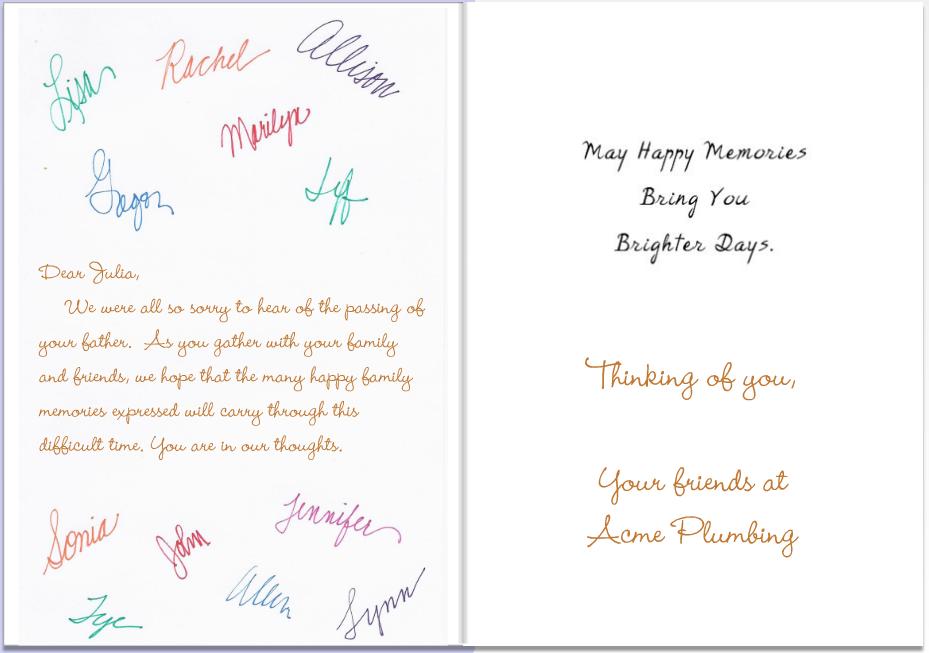 Lisa Rachel Allison
Marilyn
Dear Julia,
We were all so sorry to hear of the passing of
your father. As you gather with your family
and friends, we hope that the many happy family
memories expressed will carry through this
difficult time. You are in our thoughts.
Jennifer
Sonia John
Allen Lynn
May Happy Memories
Bring You
Brighter Days.
Thinking of you,
Your friends at
Acme Plumbing